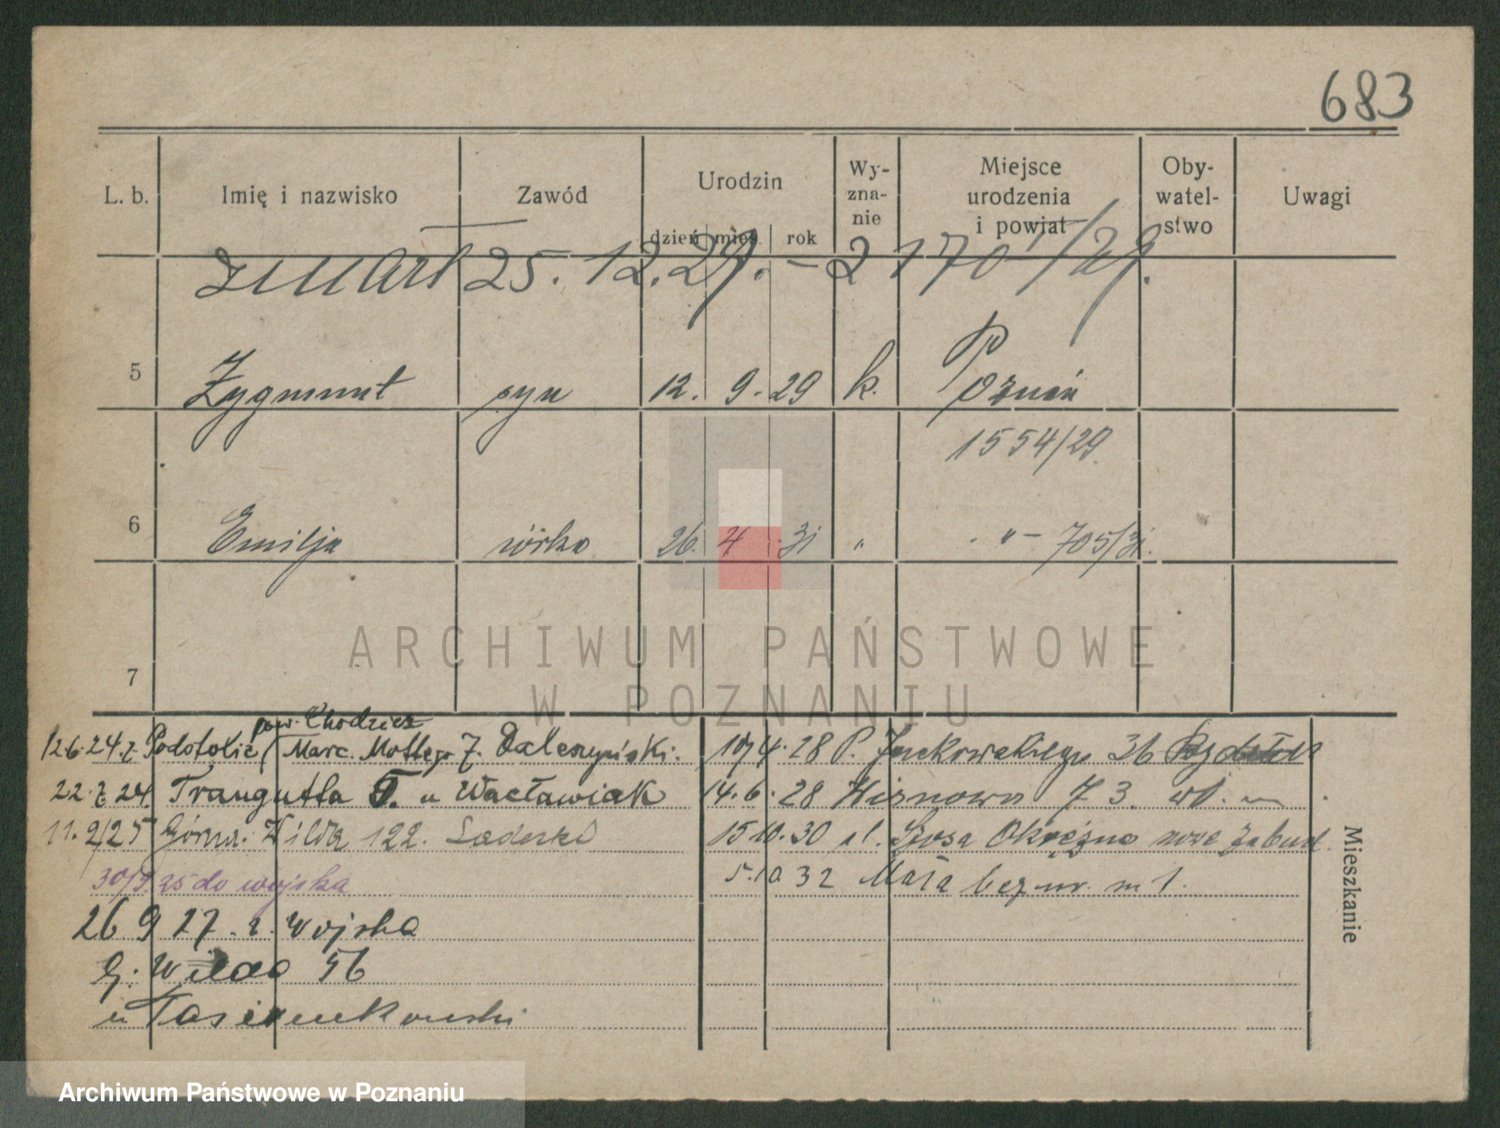 683
L. b. Imię i nazwisko Zawód Urodzin dzień mies. rok Wy-zna-nie Miejsce urodzenia i powiat Oby-watel-stwo Uwagi
zmarł 25. 12. 29. – 2170/29.
5 Zygmunt syn 12. 9. 29 k. Poznań
1554/29
6 Emilja córka 26. 4. 31 " " – 705/31.
7
ARCHIWUM PAŃSTWOWE
W POZNANIU
pow. Chodzież
12.6.24 z Podstolic Marc. Mottego 7.
22.7.24 Traugutta u Wacławiak
11.2/25 Górna Wilda 122.
30/9.25 do wojska
26 9 27. z. wojska
G. Wilda 56
u
4.28 P. 36
14.6.28 73.
15.10.30 ul. Okrężna nowe zabud.
5.10 32 Mała bez nr. m 1.
Mieszkanie
Archiwum Państwowe w Poznaniu